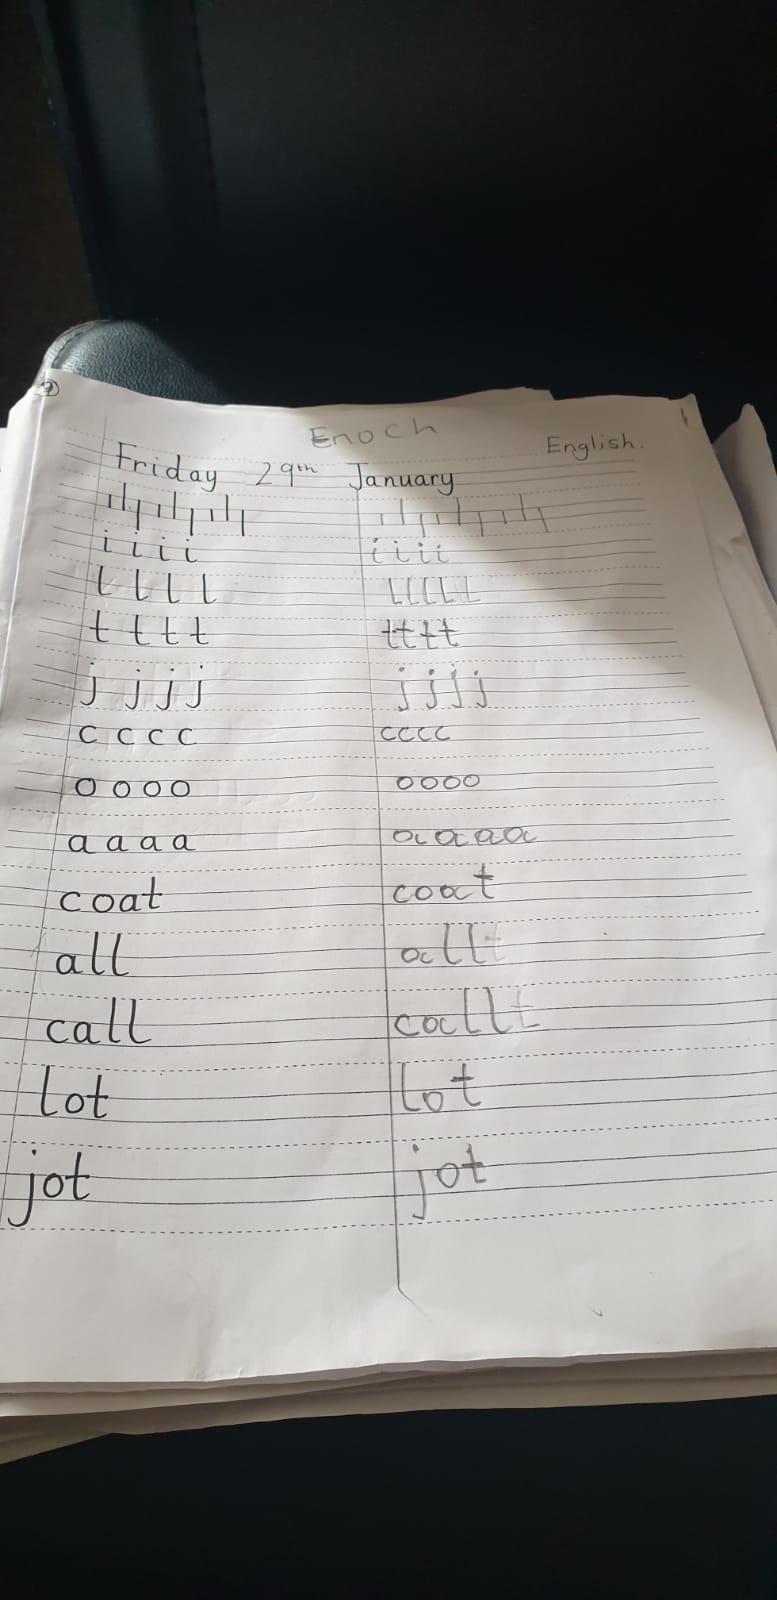 Enoch
English.
Friday 29th January
i i i i i i i i
l l l l l l l l l
t t t t t t t t
j j j j j j j j
c c c c c c c c
o o o o o o o o
a a a a a a a a
coat coat
all all
call call
lot lot
jot jot